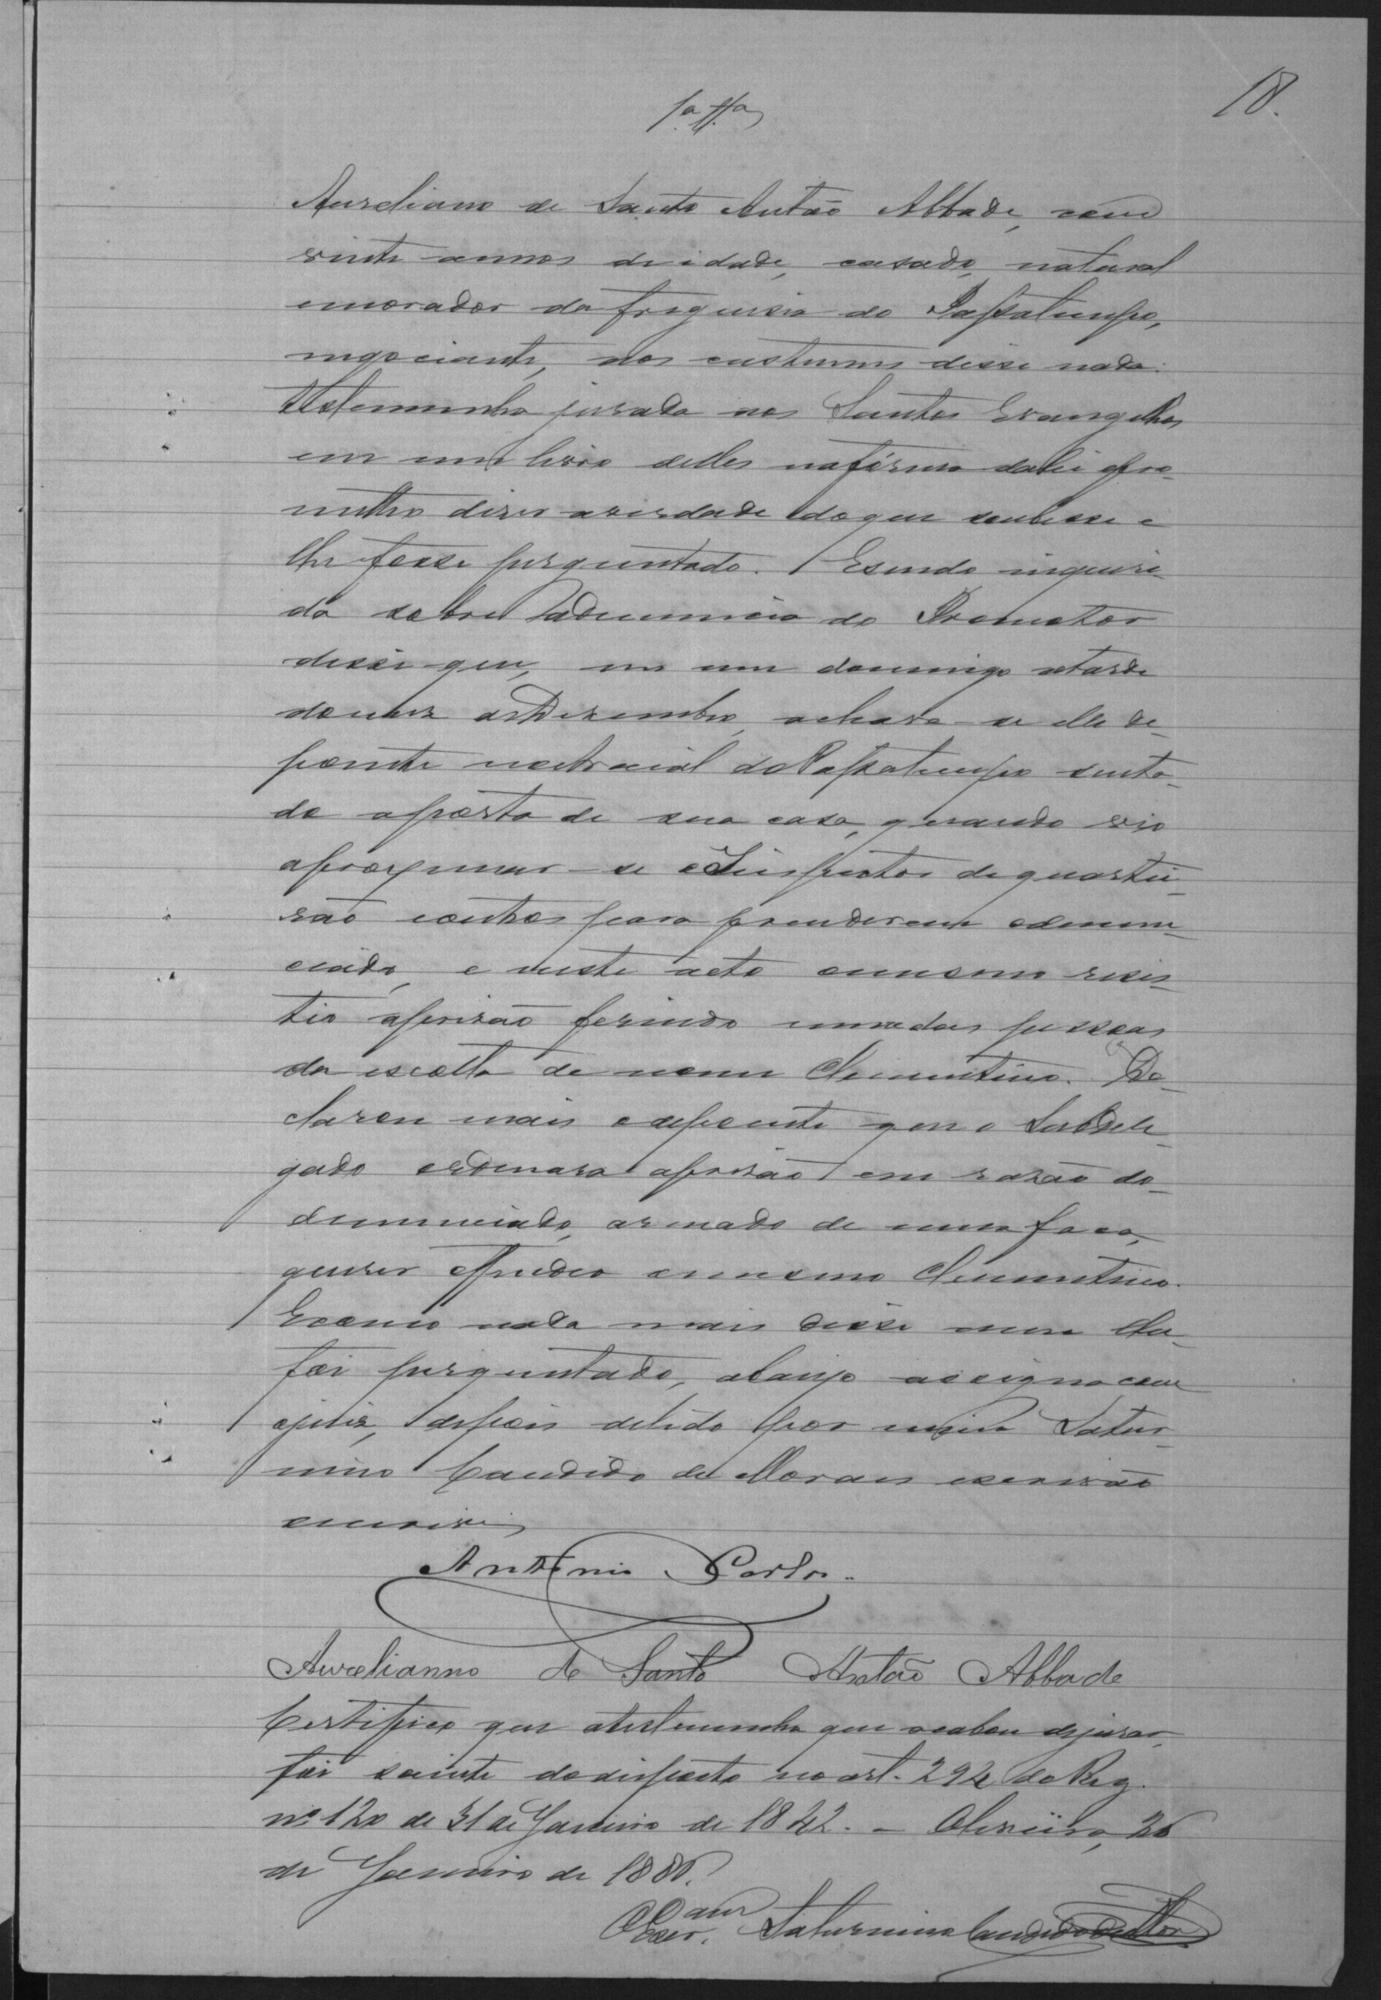 18.
1ª Tª
Aureliano de Santo Antão Abbade, com
vinte annos de idade, casado, natural
e morador da freguesia do Passatempo,
negociante, aos custumes disse nada.
Testemunha jurada aos Santos Evangelhos
em um livro delles na fórma da lei pro-
metteo diser a verdade do que soubesse e
lhe fosse perguntado. E sendo inqueri-
da sobre a denuncia do Promotor
disse que, em um domingo a tarde
do mez de Dezembro, achava-se elle de-
poente no arraial do Passatempo senta-
do a porta de sua casa, quando vio
aproximar-se o Inspector de quartei-
rão e outros para prenderem o denun-
ciado, e neste acto o mesmo resis-
tio a prisão ferindo uma das pessoas
da escolta de nome Clementino. De-
clarou mais o depoente que o Subdele-
gado ordenara a prisão em razão do
denunciado, armado de uma faca,
querer offender o mesmo Clementino.
E como nada mais disse nem lhe
foi perguntado, assigna com
o juiz, depois de lido por mim Satur-
nino Candido de Moraes escrivão
escrevi.
Antonio Carlos.
Aurelianno de Santo Antão Abbade
Certifico que a testemunha que acabou de jurar,
foi sciente do disposto no art. 294 do Reg.
nº 120 de 31 de Janeiro de 1842. - Oliveira, 26
de Janeiro de 1886.
O Escr. am Saturnino Candido de Mor